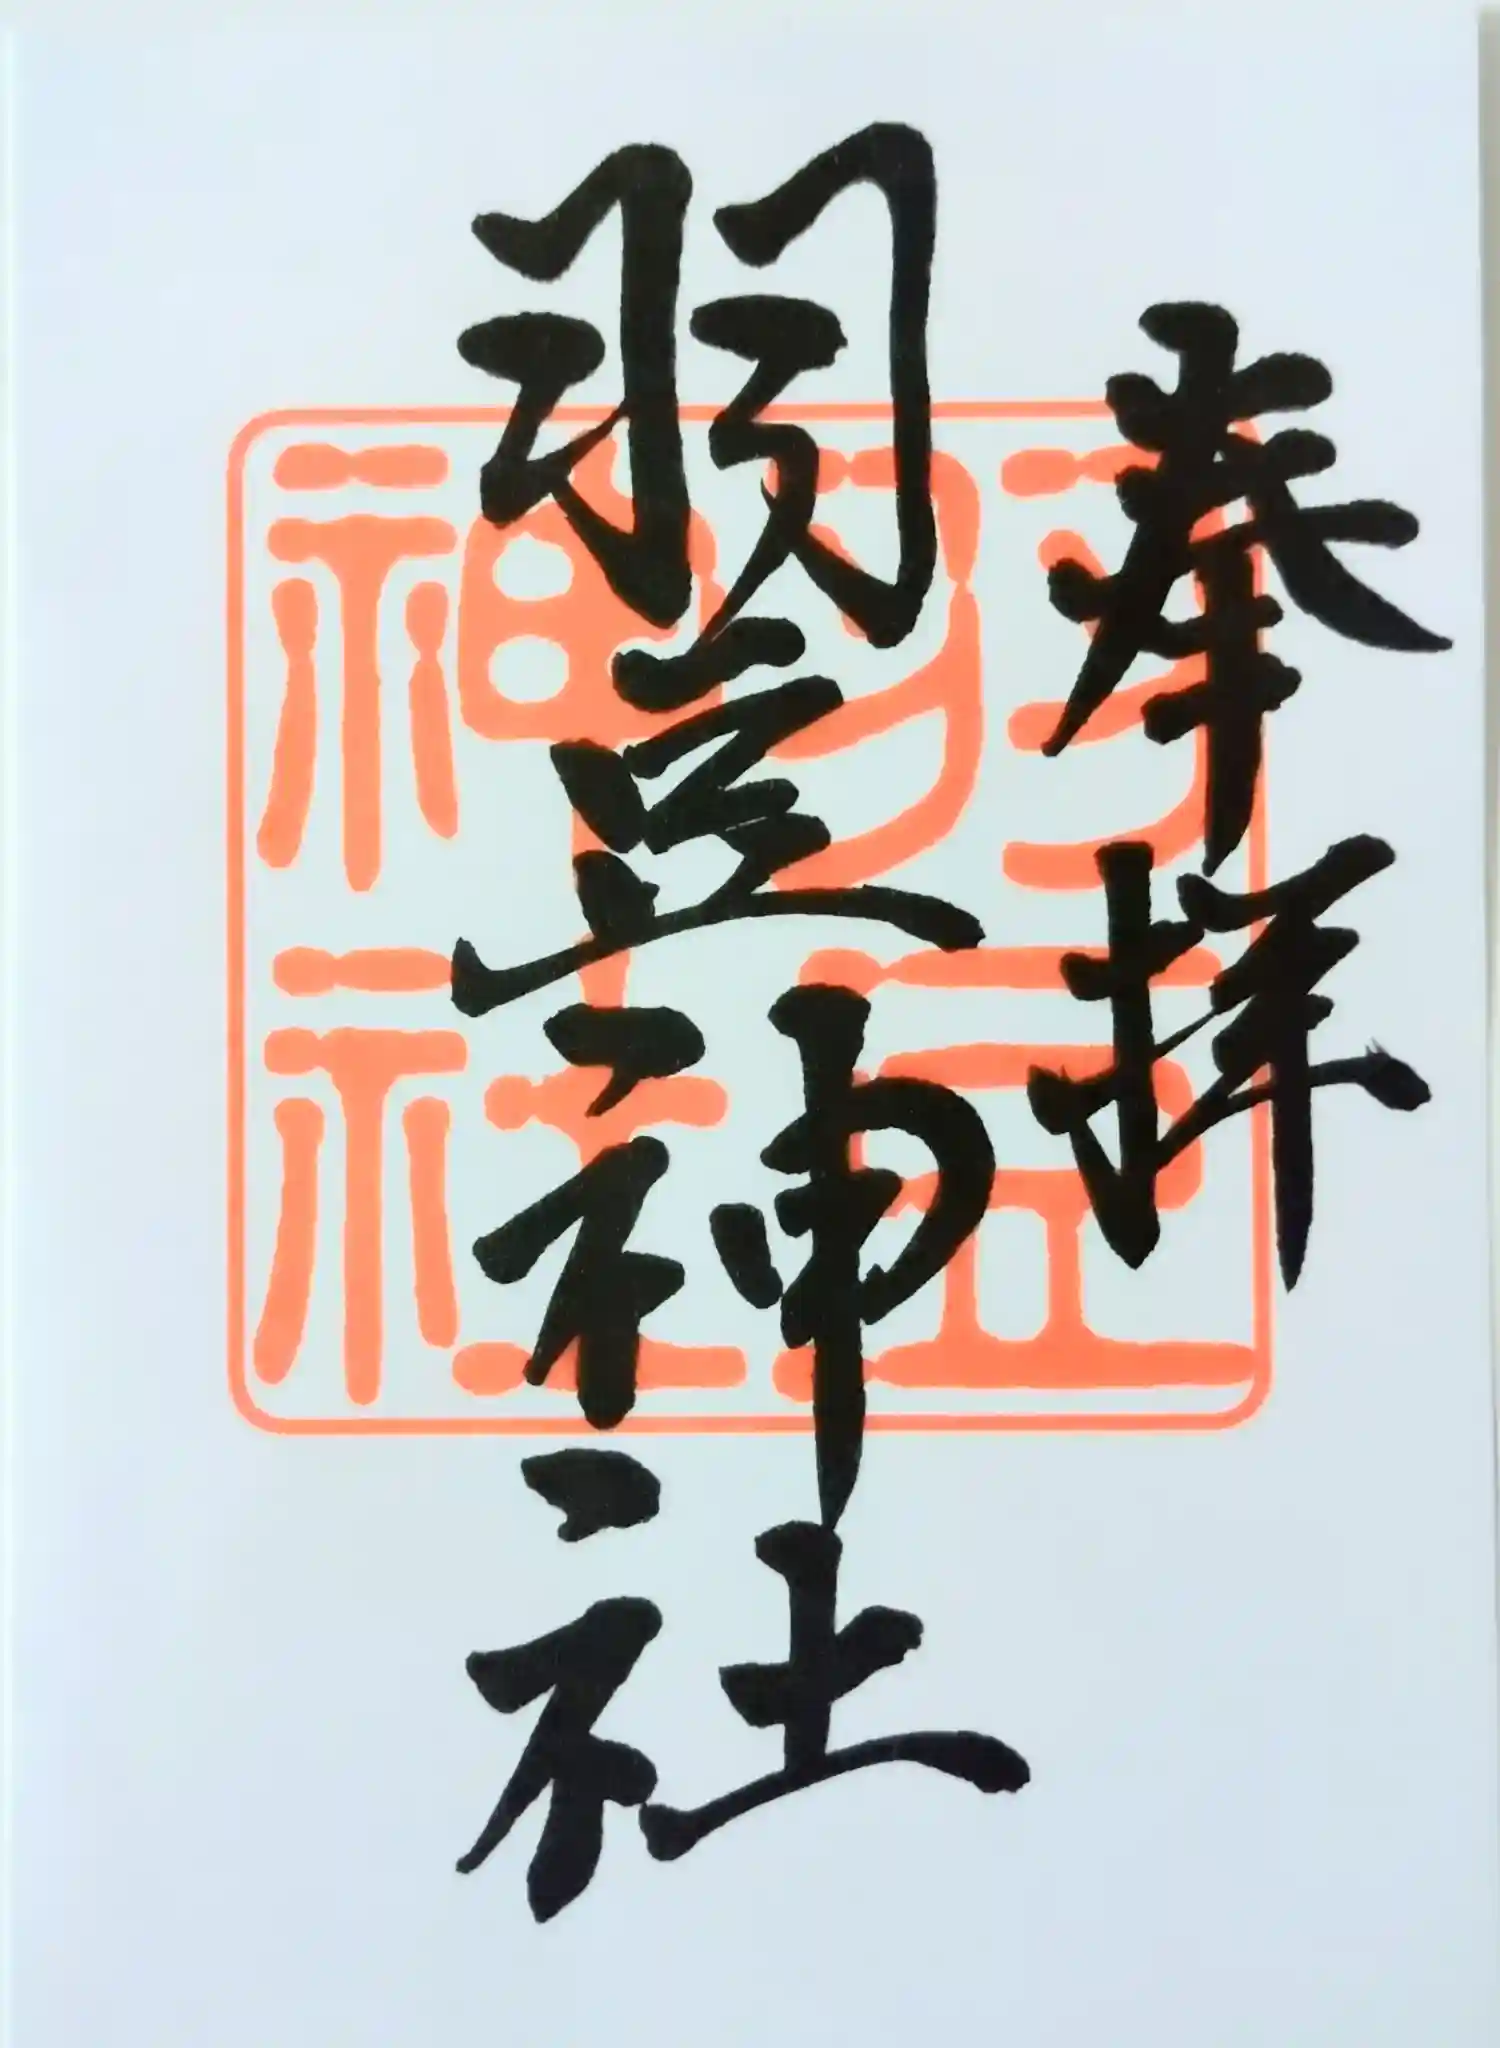 奉拝
羽豆神社
羽豆
神社